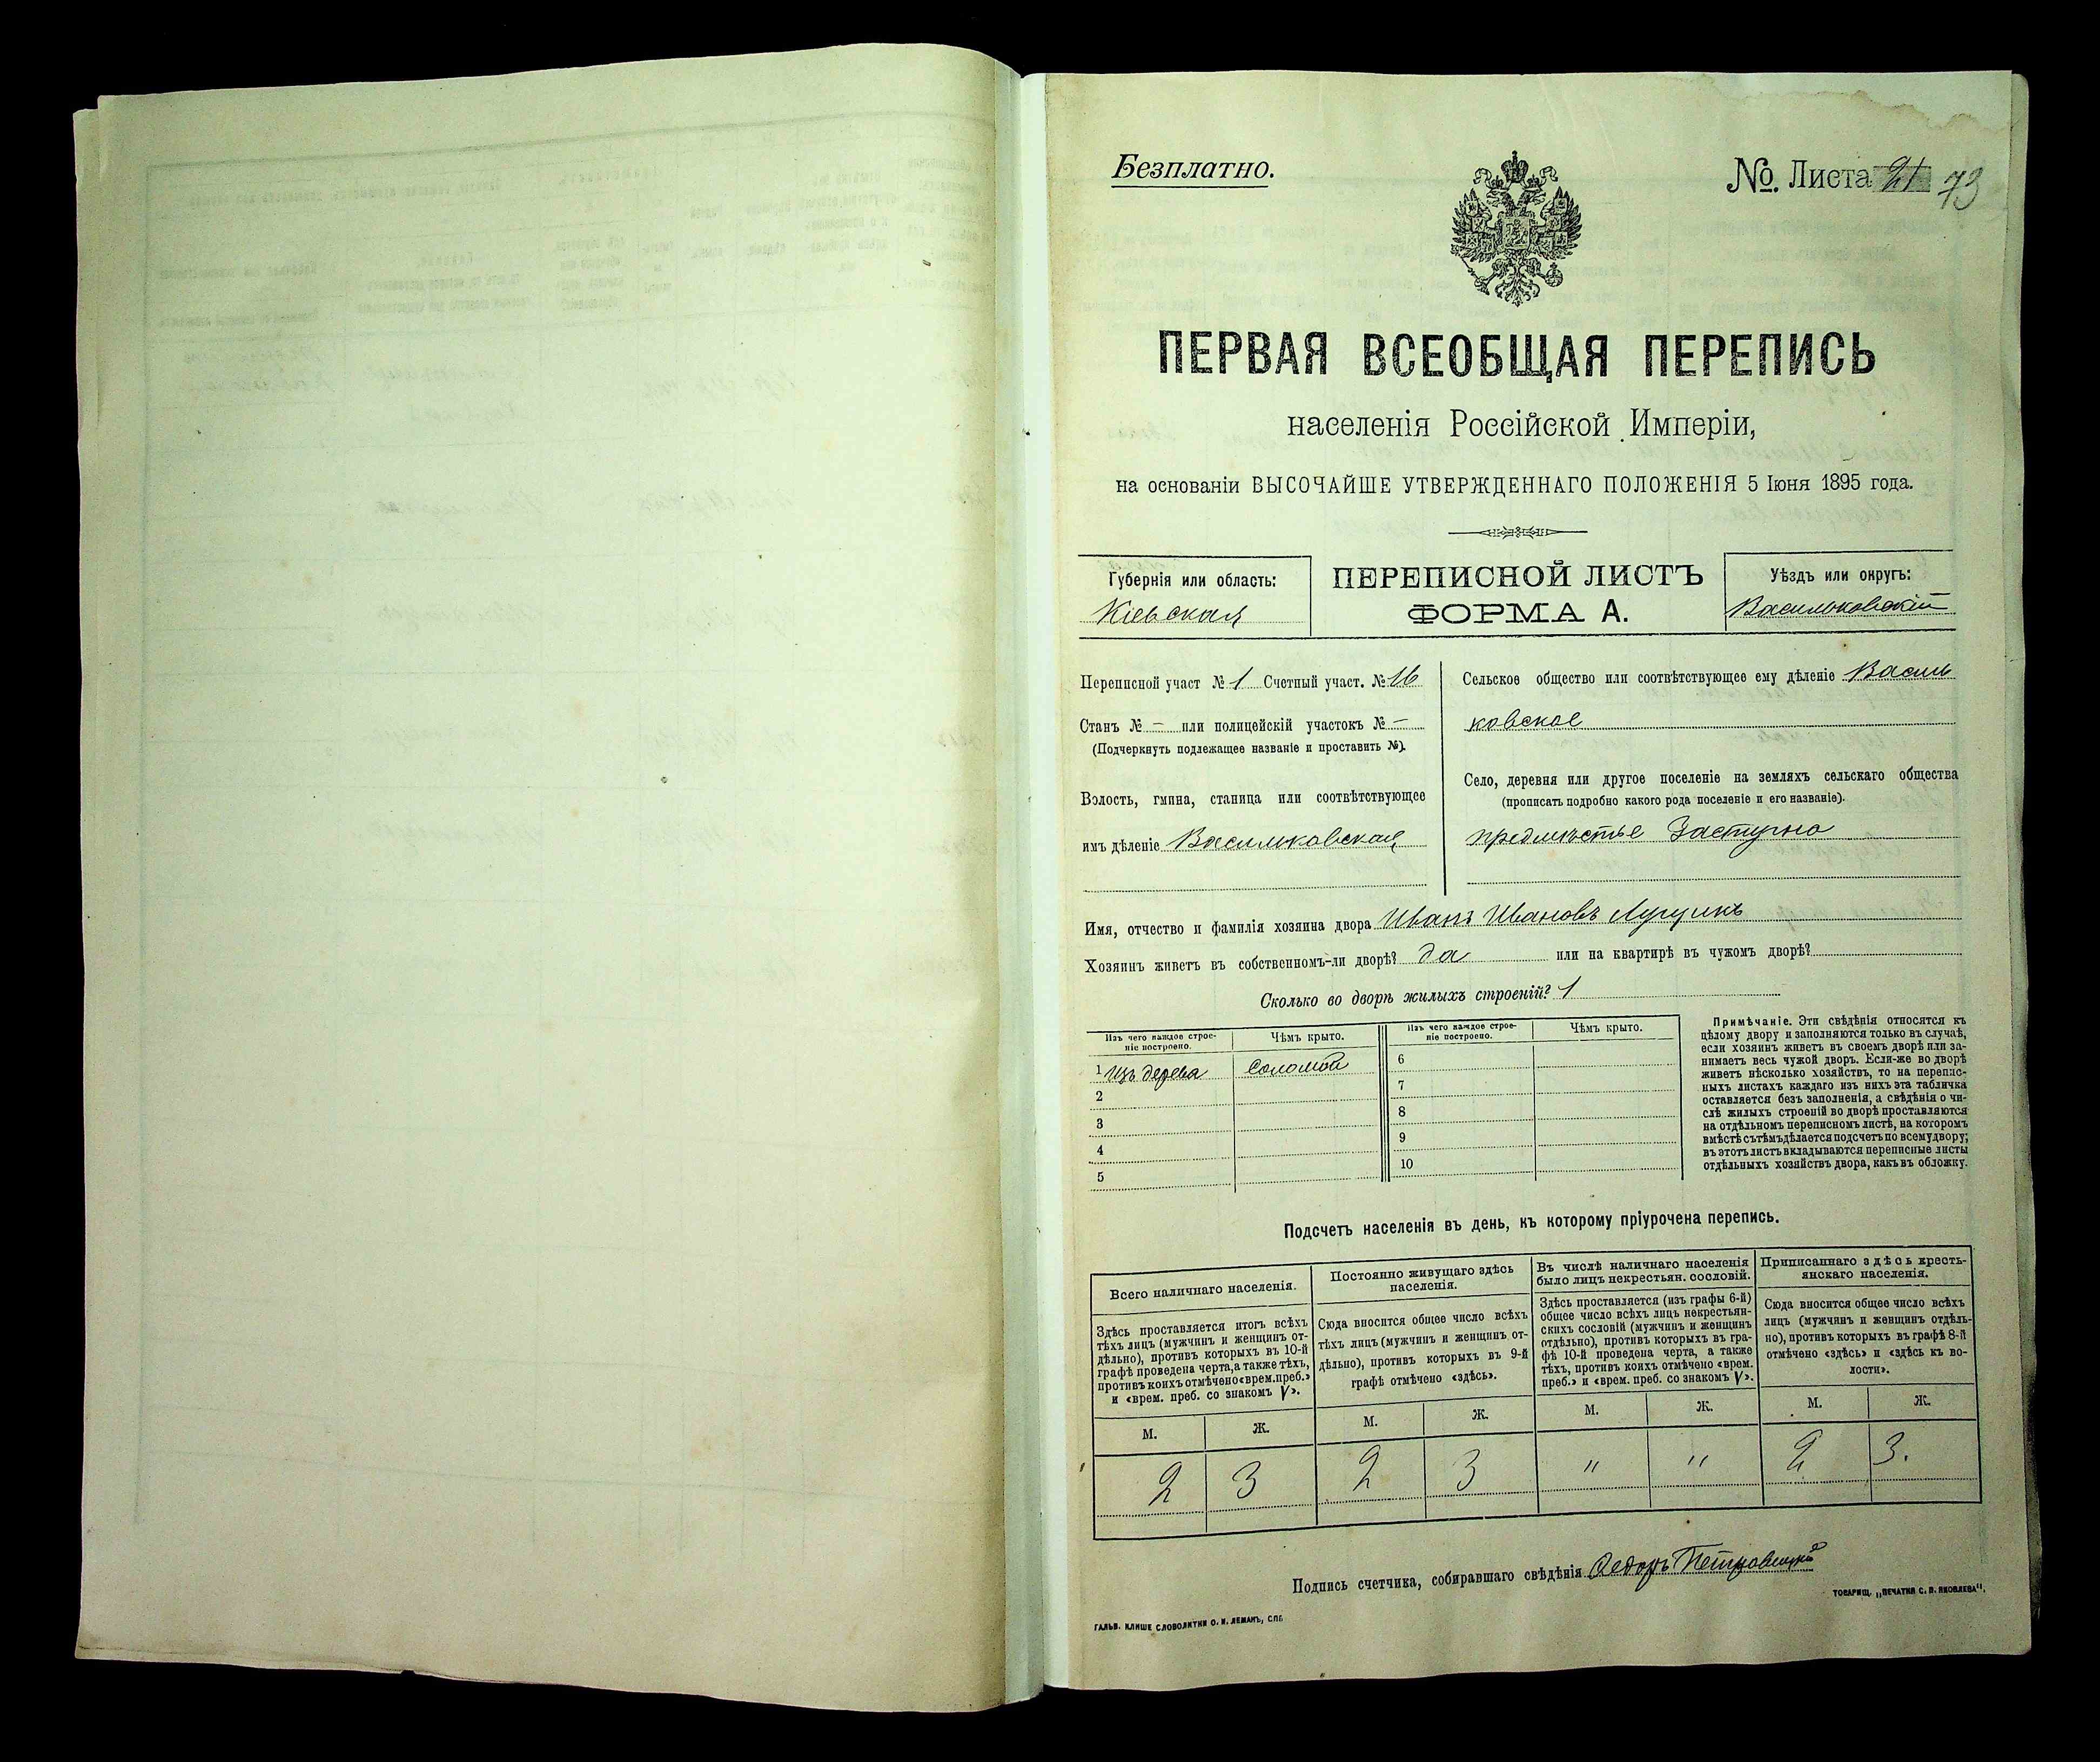 Безплатно.
№. Листа 21 73
ПЕРВАЯ ВСЕОБЩАЯ ПЕРЕПИСЬ
населенія Россійской Имперіи,
на основаніи ВЫСОЧАЙШЕ УТВЕРЖДЕННАГО ПОЛОЖЕНІЯ 5 Іюня 1895 года.
Губернія или область:
Кіевская
ПЕРЕПИСНОЙ ЛИСТЪ
ФОРМА А.
Уѣздъ или округъ:
Васильковскій
Переписной участ № 1 Счетный участ. № 16
Станъ № — или полицейскій участокъ № —
(Подчеркнуть подлежащее названіе и проставить №).
Волость, гмина, станица или соотвѣтствующее
имъ дѣленіе Васильковская
Сельское общество или соотвѣтствующее ему дѣленіе Василь
ковское
Село, деревня или другое поселеніе на земляхъ сельскаго общества
(прописать подробно какого рода поселеніе и его названіе).
предмѣстье Застугно
Имя, отчество и фамилія хозяина двора Иванъ Ивановъ
Хозяинъ живетъ въ собственномъ-ли дворѣ? да или на квартирѣ въ чужомъ дворѣ?
Сколько во дворѣ жилыхъ строеній? 1
Изъ чего каждое строе-
ніе построено.
Чѣмъ крыто.
Изъ чего каждое строе-
ніе построено.
Чѣмъ крыто.
1 Изъ дерева Соломой 6
2 7
3 8
4 9
5 10
Примѣчаніе. Эти свѣдѣнія относятся къ
цѣлому двору и заполняются только въ случаѣ,
если хозяинъ живетъ въ своемъ дворѣ или за-
нимаетъ весь чужой дворъ. Если-же во дворѣ
живетъ нѣсколько хозяйствъ, то на перепис-
ныхъ листахъ каждаго изъ нихъ эта табличка
оставляется безъ заполненія, а свѣдѣнія о чи-
слѣ жилыхъ строеній во дворѣ проставляются
на отдѣльномъ переписномъ листѣ, на которомъ
вмѣстѣ съ тѣмъ дѣлается подсчетъ по всему двору;
въ этотъ листъ вкладываются переписные листы
отдѣльныхъ хозяйствъ двора, какъ въ обложку.
Подсчетъ населенія въ день, къ которому пріурочена перепись.
Всего наличнаго населенія.
Здѣсь проставляется итогъ всѣхъ
тѣхъ лицъ (мужчинъ и женщинъ от-
дѣльно), противъ которыхъ въ 10-й
графѣ проведена черта, а также тѣхъ,
противъ коихъ отмѣчено «врем. преб.»
и «врем. преб. со знакомъ V».
Постоянно живущаго здѣсь
населенія.
Сюда вносится общее число всѣхъ
тѣхъ лицъ (мужчинъ и женщинъ от-
дѣльно), противъ которыхъ въ 9-й
графѣ отмѣчено «здѣсь».
Въ числѣ наличнаго населенія
было лицъ некрестьян. сословій.
Здѣсь проставляется (изъ графы 6-й)
общее число всѣхъ лицъ некрестьян-
скихъ сословій (мужчинъ и женщинъ
отдѣльно), противъ которыхъ въ гра-
фѣ 10-й проведена черта, а также
тѣхъ, противъ коихъ отмѣчено «врем.
преб.» и «врем. преб. со знакомъ V».
Приписаннаго здѣсь кресть-
янскаго населенія.
Сюда вносится общее число всѣхъ
лицъ (мужчинъ и женщинъ отдѣль-
но), противъ которыхъ въ графѣ 8-й
отмѣчено «здѣсь» и «здѣсь къ во-
лости».
М. Ж. М. Ж. М. Ж. М. Ж.
2 3 2 3 " " 2 3.
Подпись счетчика, собиравшаго свѣдѣнія Федоръ Петровицкій
ГАЛЬВ. КЛИШЕ СЛОВОЛИТНИ О. И. ЛЕМАНЪ, СПБ.
ТОВАРИЩ. „ПЕЧАТНЯ С. П. ЯКОВЛЕВА".